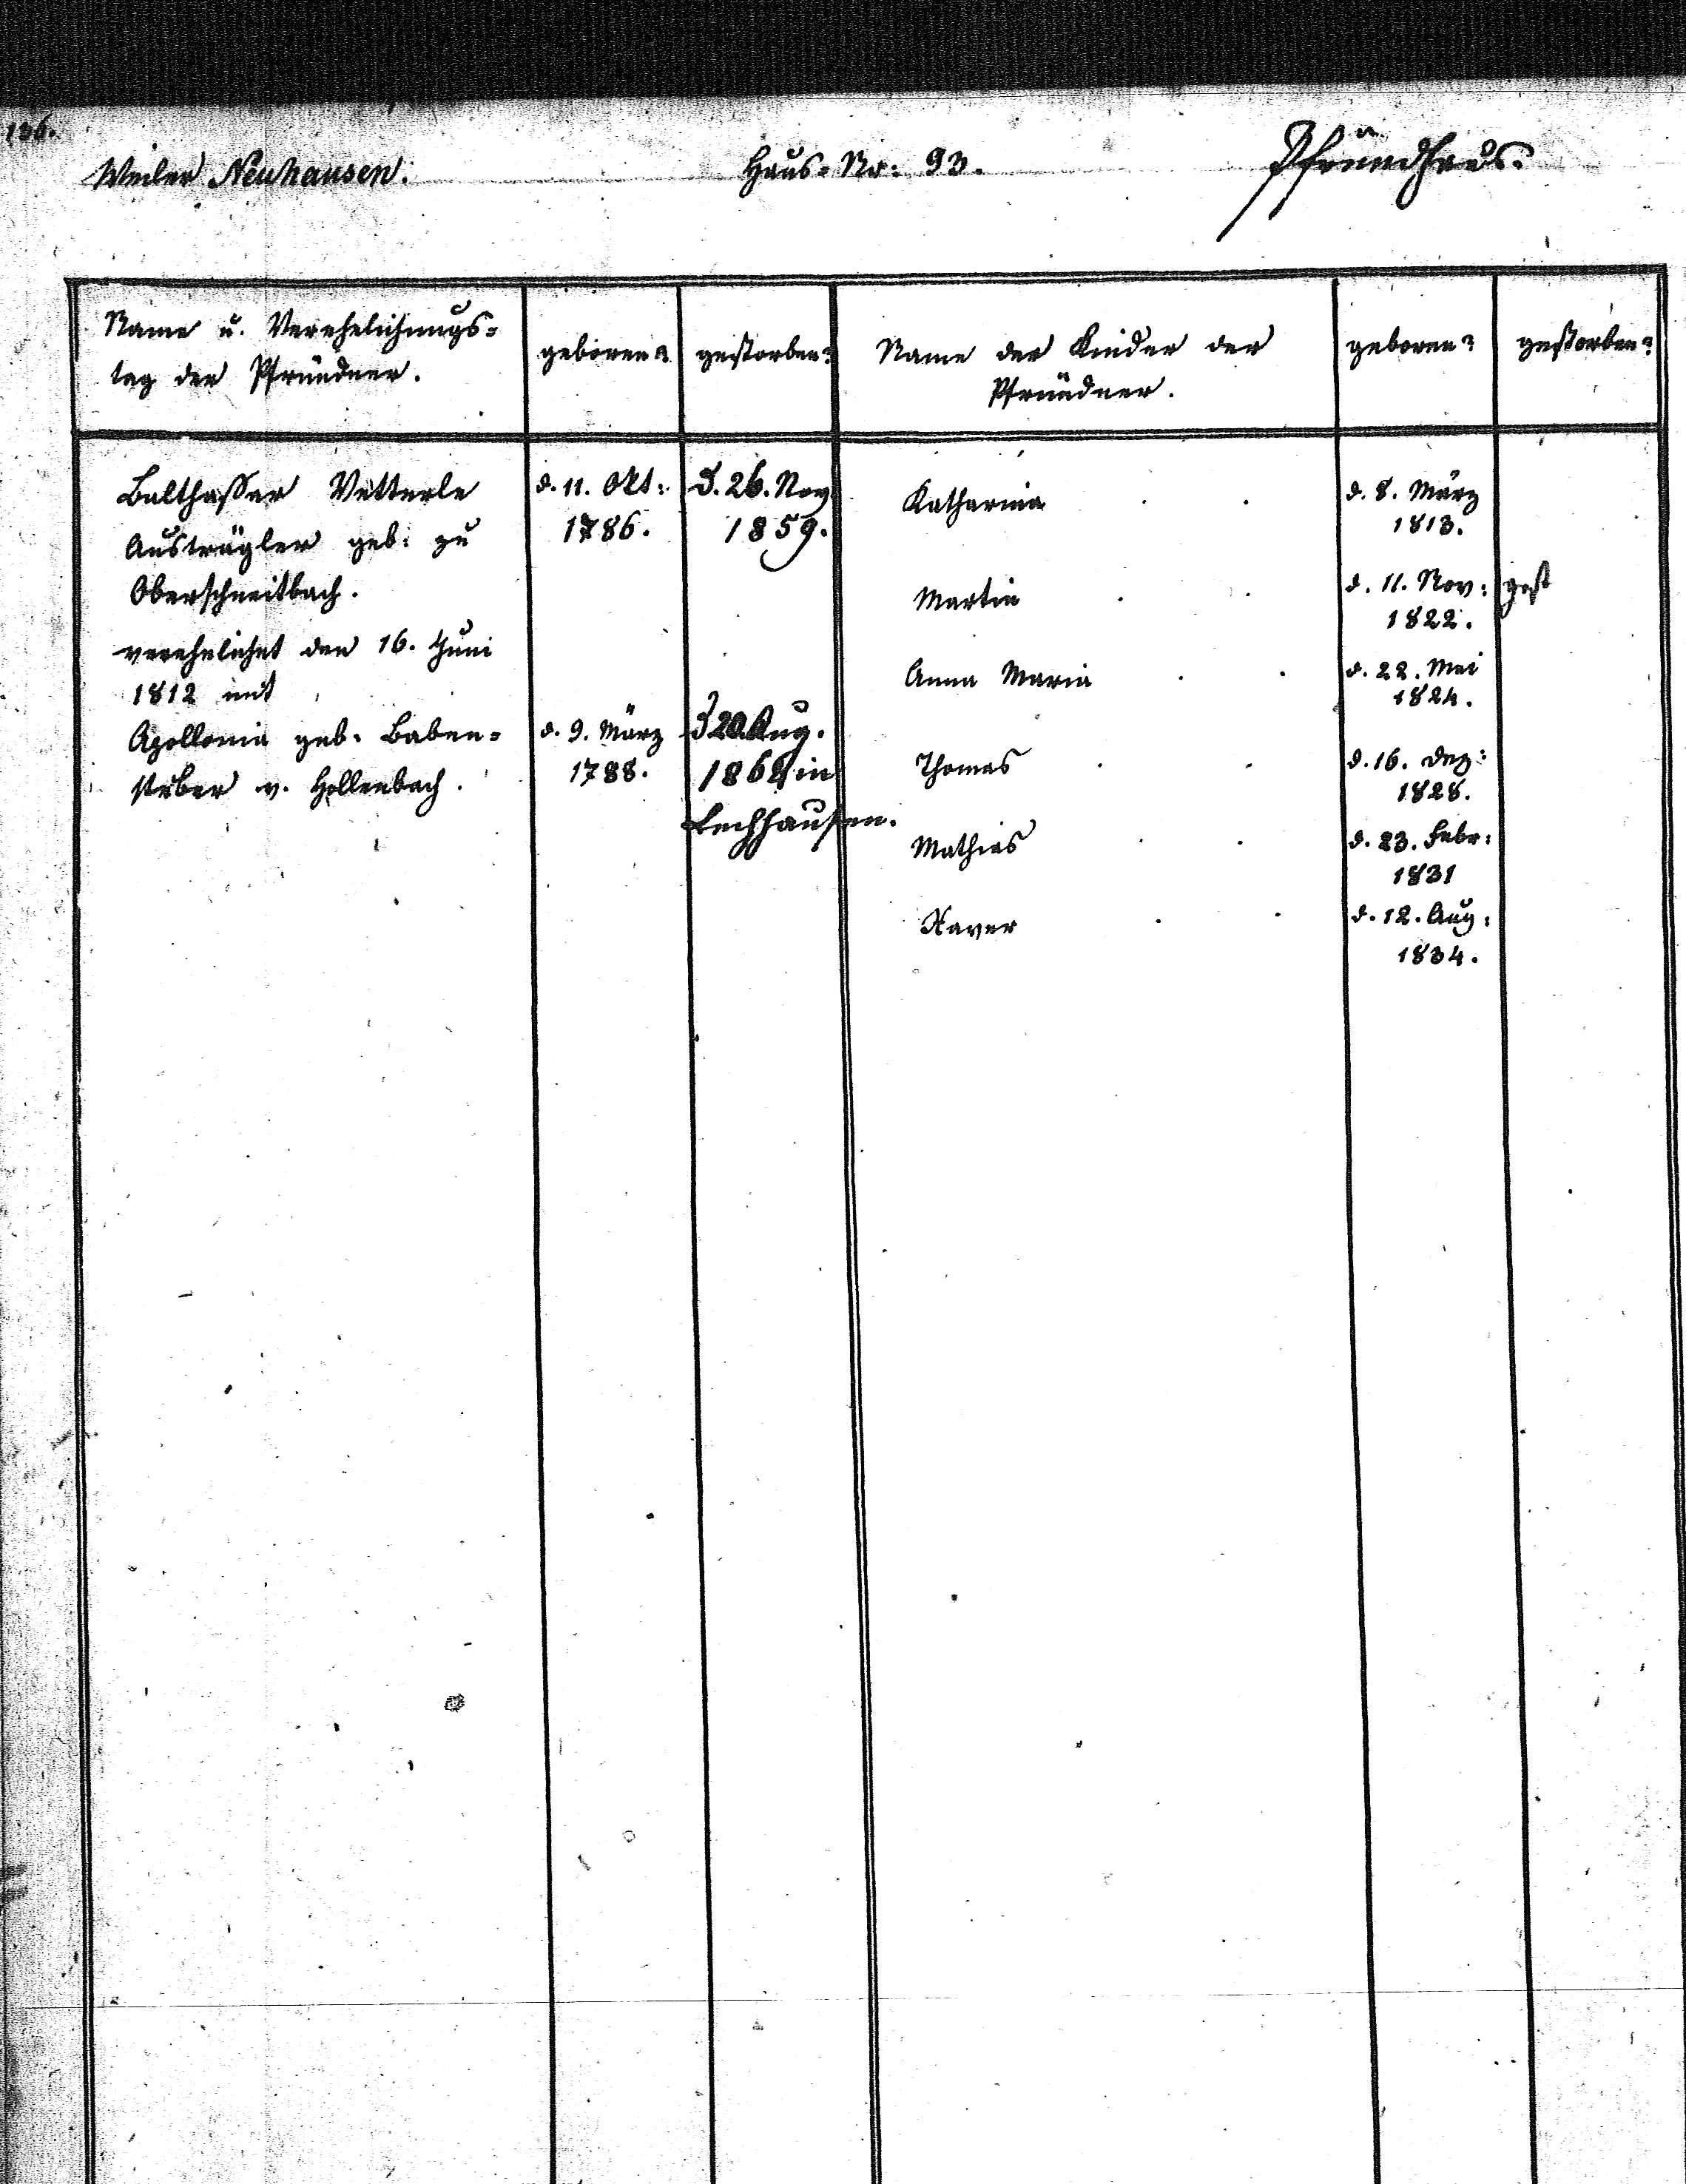 136.
Weiler Neuhausen.
Haus=Nr: 93.
Pfründhaus.
Name u. Verehelichungs=
tag der Pfründner.
geboren?
gestorben?
Name der Kinder der
Pfründner.
geboren?
gestorben?
Balthasser Vetterle
Austrägler geb: zu
Oberschneitbach.
verehelichet den 16. Juni
1812 mit
Apollonia geb. Baben=
stuber v. Hollenbach.
d. 11. Okt:
1786.
d. 9. März
1788.
d. 26. Nov
1859.
d 20 Aug.
in
Lechhausen.
Katharina
Martin
Anna Maria
Thomas
Mathias
Xaver
d. 8. März
1813.
d. 11. Nov:
1822.
d. 22. Mai
1824.
d. 16. Dez:
1828.
d. 23. Febr:
1831
d. 12. Aug:
1834.
gest